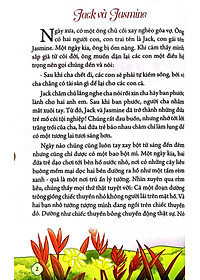 Jack và Jasmine
Ngày xưa, có một ông chủ cối xay nghèo góa vợ. Ông
có hai người con, con trai tên là Jack, con gái tên
Jasmine. Một ngày kia, ông bị ốm nặng. Khi cảm thấy mình
sắp giã từ cõi đời, ông muốn dặn lại các con một điều hệ
trọng nên gọi chúng đến và nói:
- Sau khi cha chết đi, các con sẽ phải tự kiếm sống, bởi vì
cha chẳng có tài sản gì để lại cho các con.
Jack chăm chú lắng nghe cha nói rồi xin cha hãy ban phước
lành cho hai anh em. Sau khi ban phước, người cha nhắm
mắt xuôi tay. Từ đó, Jack và Jasmine đã trở thành những đứa
trẻ mồ côi tội nghiệp! Chúng rất đau buồn, nhưng nhớ tới lời
trăng trối của cha, hai đứa trẻ bảo nhau chăm chỉ làm lụng để
có một tương lai tươi sáng hơn.
Ngày nào chúng cũng luôn tay xay bột từ sáng đến đêm
nhưng cũng chỉ được có một bao bột mì. Một ngày kia, hai
đứa trẻ dạo chơi tới bên hồ nước nhỏ, nơi có những cây liễu
buông mềm mại dọc hai bên đường ra hồ như một tấm rèm
xanh - quả là một nơi trú ẩn lý tưởng. Nhìn xuyên qua rèm
liễu, chúng thấy mọi thứ thật tuyệt vời: Cả một đoạn đường
trông giống chiếc thuyền nhỏ không người lái trên mặt hồ. Và
hai bạn nhỏ tưởng tượng mình đang ngồi trên chiếc thuyền
đó. Dường như chiếc thuyền bỗng chuyển động thật sự. Nó
2